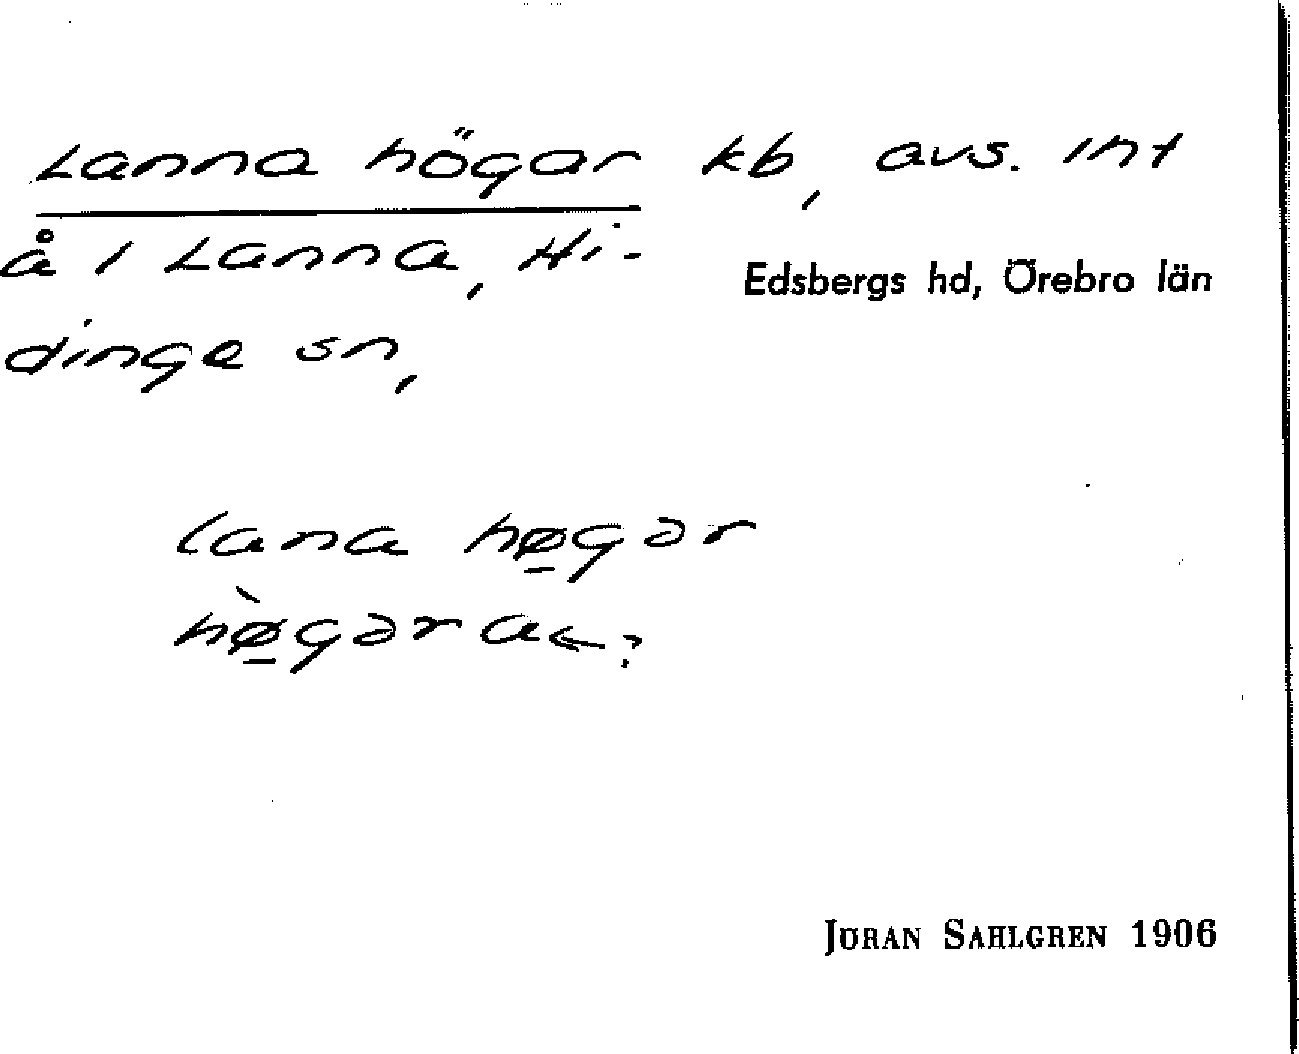 Lanna högar kb, avs. int
å i Lanna, Hi-
Edsbergs hd, Örebro län
dinge sn,
lana høgər
hø̀gəra
JÖRAN SAHLGREN 1906